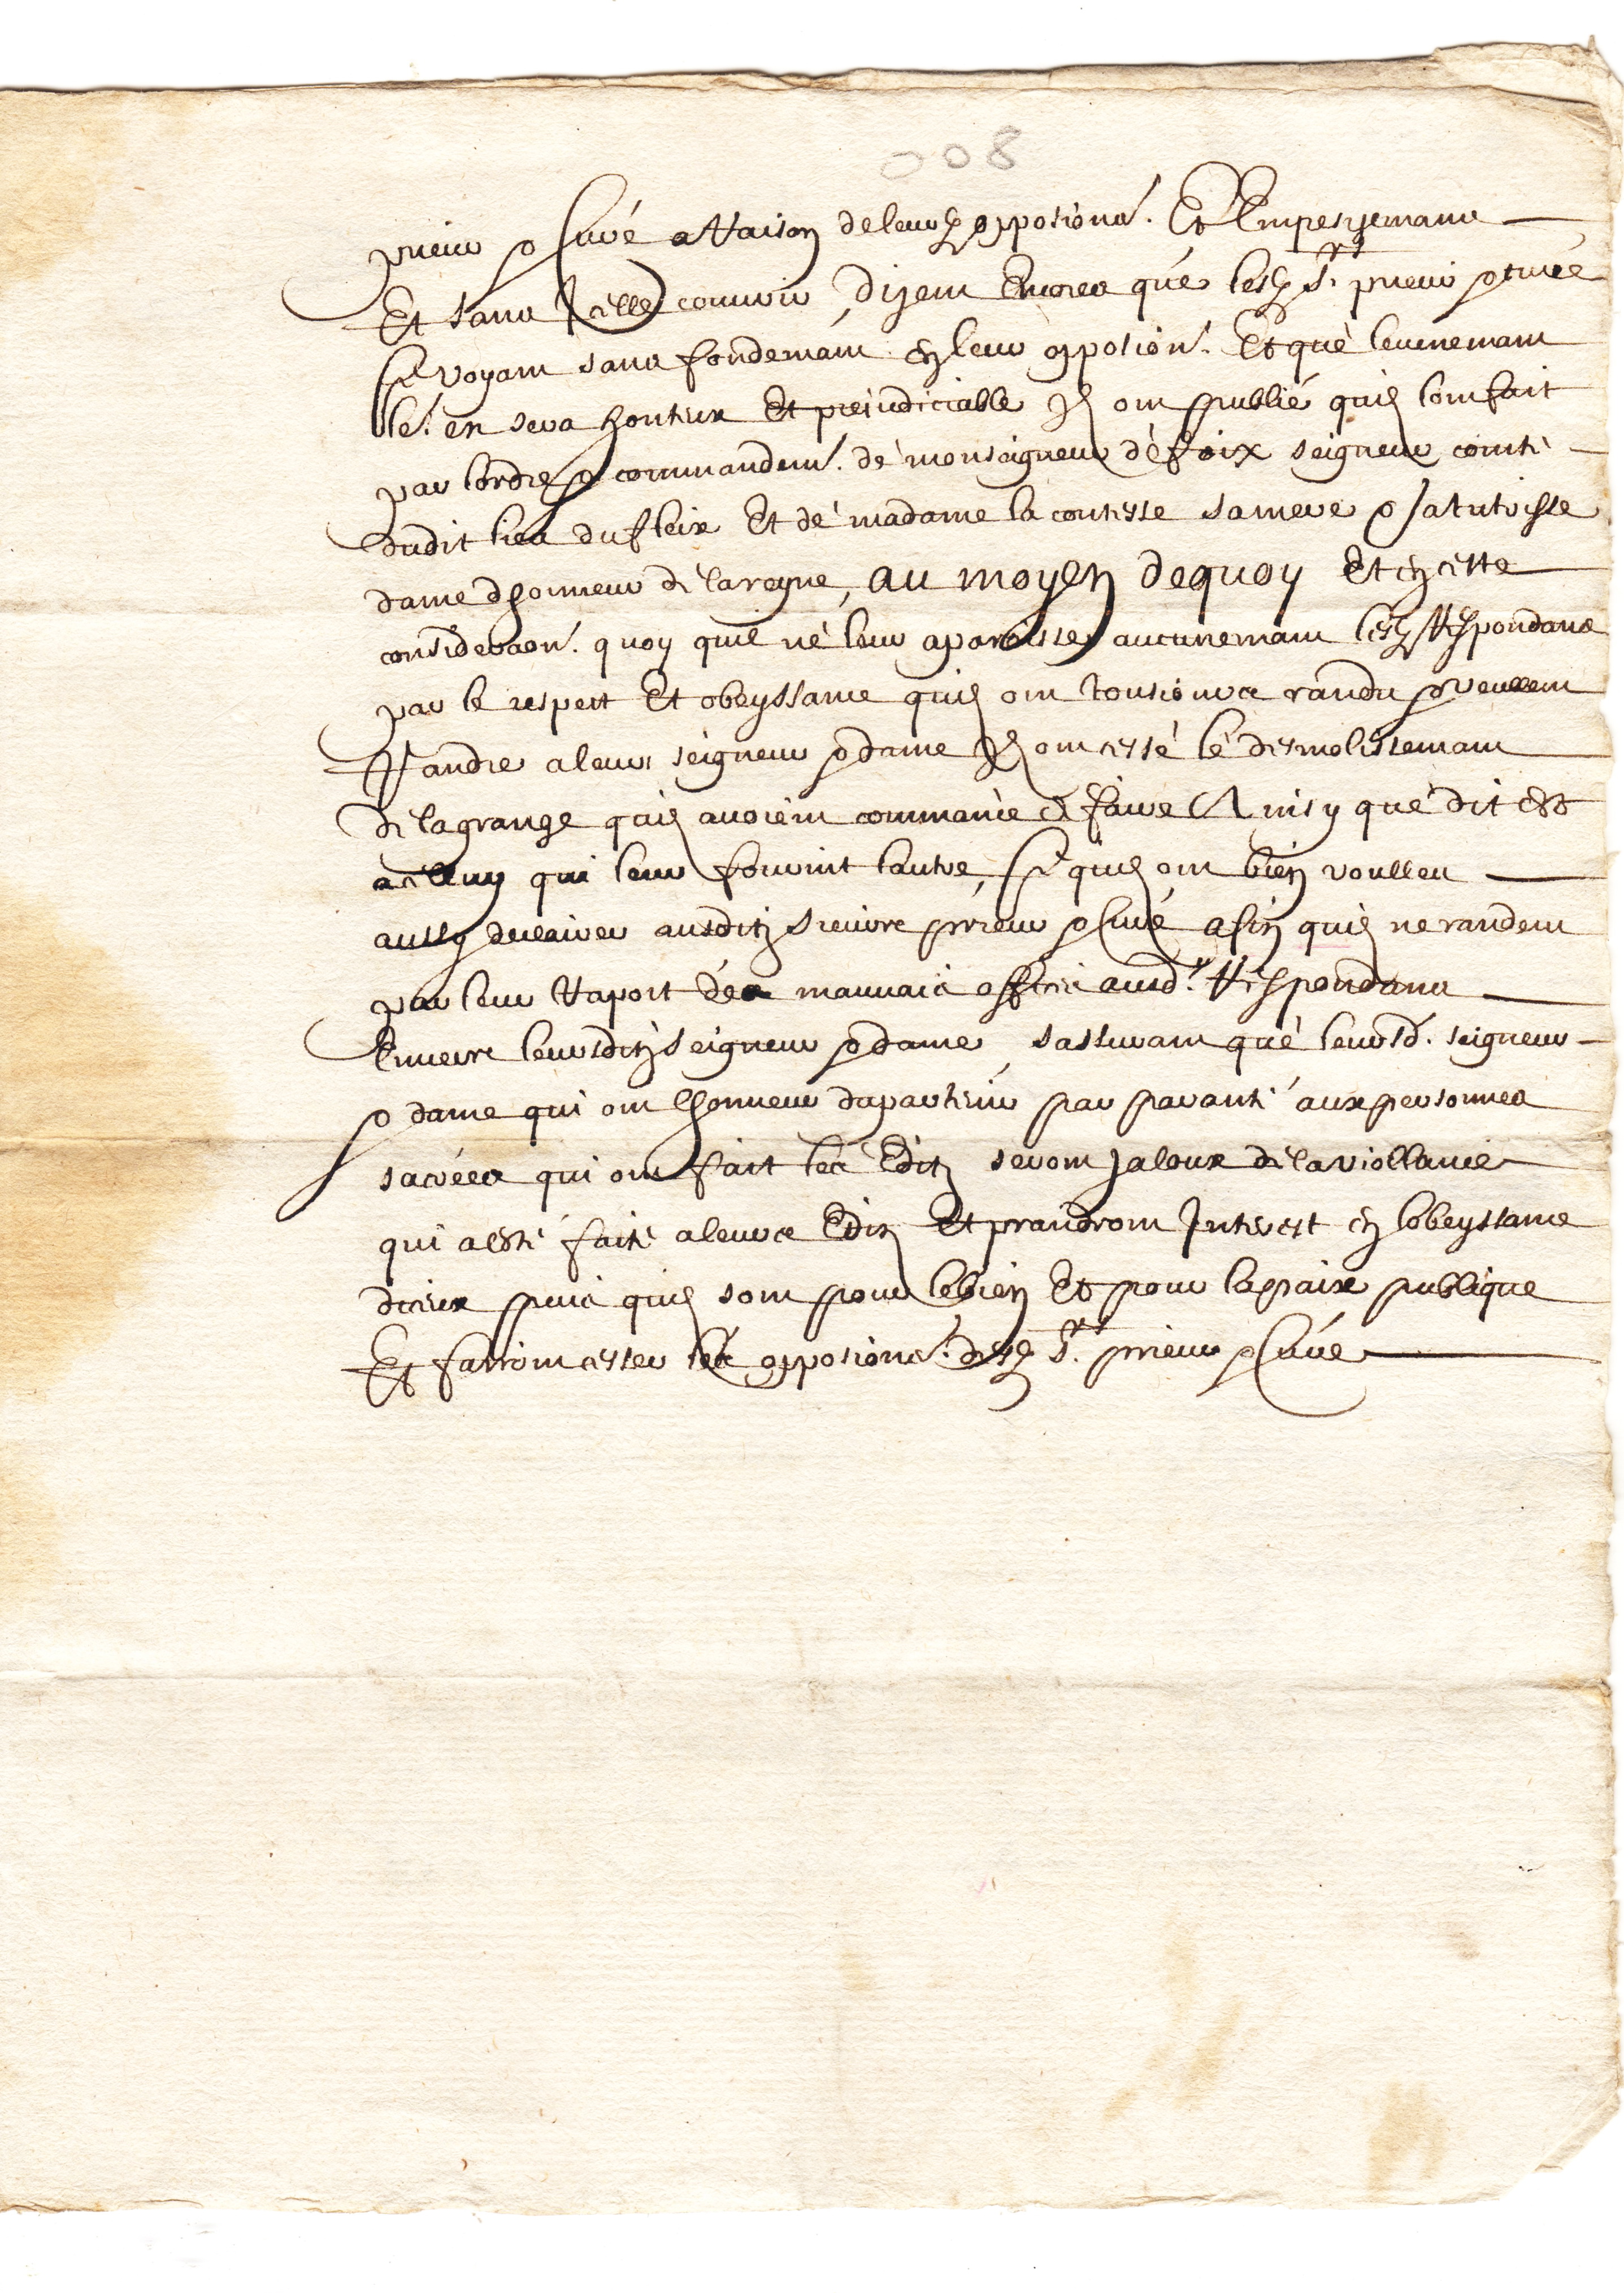 008
prieur & curé a raison de leursd opposions. Et Empeschemans
Et sans Icelle couvrir, dizent Encores que lesd Srs prieur & curé
se voyant sans fondemant en leur oposion. Et que levenemant
leur en sera honteux Et preiudiciable Ilz ont publié quilz lont fait
par lordre & commandemt. de monseigneur de foix seigneur comte
dudit lieu du fleix Et de madame la contesse sa mere & sa tutrisse
dame dhonneur de la reyne, au moyen dequoy Et en cette
consideraon. quoy quil ne leur aparoisse aucunemant lesd Respondans
par le respect Et obeyssance quilz ont tousiours randu & veullent
Randre a leurs seigneur & dame Ilz ont cessé le desmolissemant
de la grange quilz avoient commancé de faire Ainsy que dit est
a celluy qui leur fournit lautre, Ce quilz ont bien voulleu
aussy declairer ausditz sieurs prieur & curé afin quilz ne randent
par leur raport des mauvais offices ausd. Respondans
Envers leursditz seigneur & dame sassurant que leursd. seigneur
& dame qui ont lhonneur dapartenir par paranté aux personnes
sacrées qui ont fait les Editz seront Jaloux de la viollance
qui a esté faite a leurs Editz Et prandront Interest en lobeyssance
diceux puis quilz sont pour le bien Et pour la paix publique
Et fairont cesser les opposions. desd Srs. prieur & curé